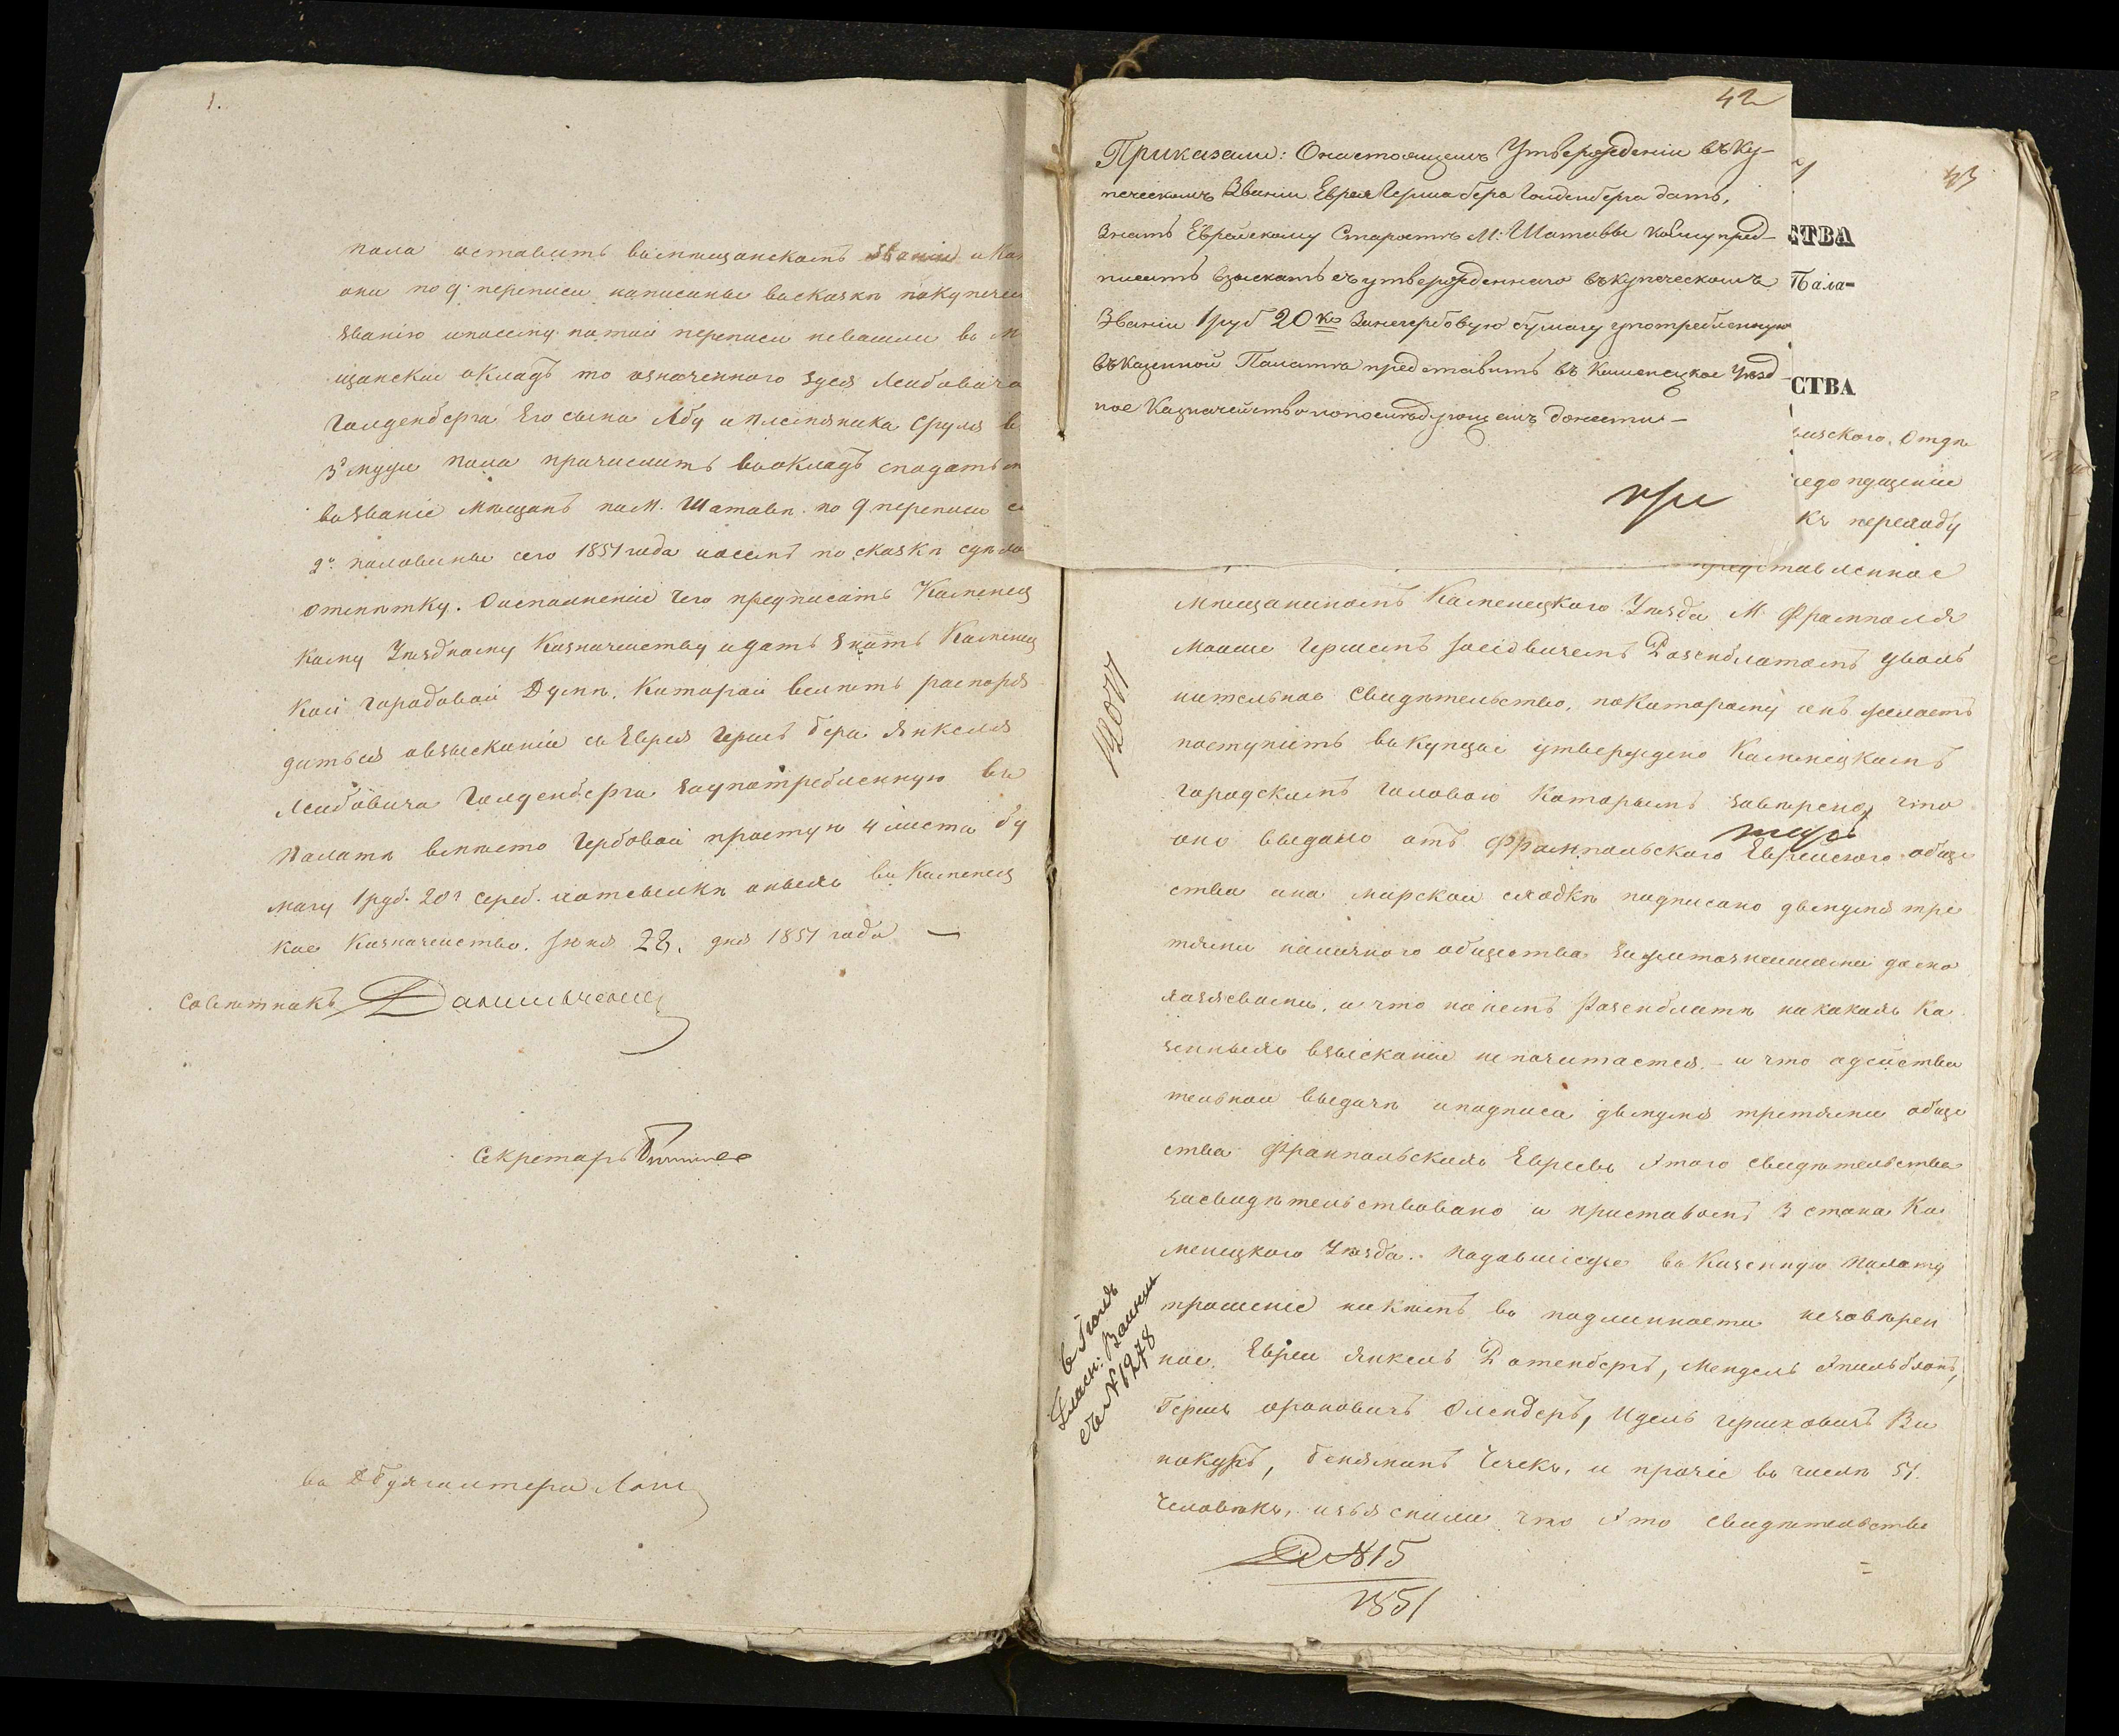 1.
пола оставить вомещанскомъ званіи и Ка
они по 9 переписи написаны васказкѣ покупечес
званію ипосему потой переписи невошли во м
щанскій окладъ то означенного Зуся Лейбовича
Голденберга Его сына Абу и племяника Сруля в
3 муже пола причислить воокладъ сподатьми
возваніе мѣщанъ пом. Шатаве по 9 переписи с
2й половины сего 1851 года иосемъ по сказкѣ сдѣла
отмѣтку. Оисполненіе чего предписать Каменец
кому Уѣздному Казначейству идать знать Каменец
кой городовой Думѣ, которой велѣть распоря
дится овзысканіи съ Еврея Герш бера Янкеля
Лейбовича Голденберга заупотребленную въ
Палатѣ вмѣсто гербовой простую 4 листа бу
магу 1 руб. 20 к сереб. иотсылкѣ оныхъ въ Каменец
кое Казначейство. Іюня 28. дня 1851 года —
Совѣтникъ
Секретарь
за Бухгалтера
42
Приказали: Онастоящемъ Утвержденіи въ Ку-
печескомъ Званіи Еврея Герша бера Голденберга дать,
знать Еврейскому Старостѣ М: Шатавы коему пред-
писать взыскать съ утвержденнаго въ купеческомъ
Званіи 1 руб 20 ко Занегербовую бумагу употребленную
въ Казенной Палатѣ представить въ Каменецкое Уѣзд
ное Казначейство ипослѣдующемъ донести —
43
СТВА
Пала-
СТВА
Отдѣ
недопущеніи
къ переходу
представленное
мѣщаниномъ Каменецкого Уѣзда М. Фрамполя
Мошие Гершемъ Іосіовичемъ Розенблатомъ уволь
нительное Свидѣтельство, покоторому онъ желаетъ
поступить въ купцы утверждено Каменецкимъ
Городскимъ Головою которымъ завѣрено, что
оно выдано отъ Фрампольского Еврейского обще
ства ина мирской сходкѣ подписано двумя тре
тями наличного общества зажиточнейшими домо
хозяевами, и что нанемъ Розенблатѣ никакихъ Ка
зенныхъ взысканій непочитается. – и что одѣйстви
тельной выдачѣ иподписи двумя третями обще
ства Франпольскихъ Евреевъ этого свидѣтельства
засвидѣтельствовано и приставомъ 3 стана Ка
менецкого Уѣзда. – Подавшіеже въ Казенную Палату
прошеніе никѣмъ во подлинности незавѣрен
ное, Евреи Янкель Ротенберъ, Мендель Апельблатъ,
Герш ароновичъ Олендеръ, Идель гершковичъ Ви
нокуръ, Бенямин Чечкъ, и прочіе въ числѣ 51.
человѣкъ, изъяснили что это свидѣтельство
12077
№ 1978
№ 15
1851